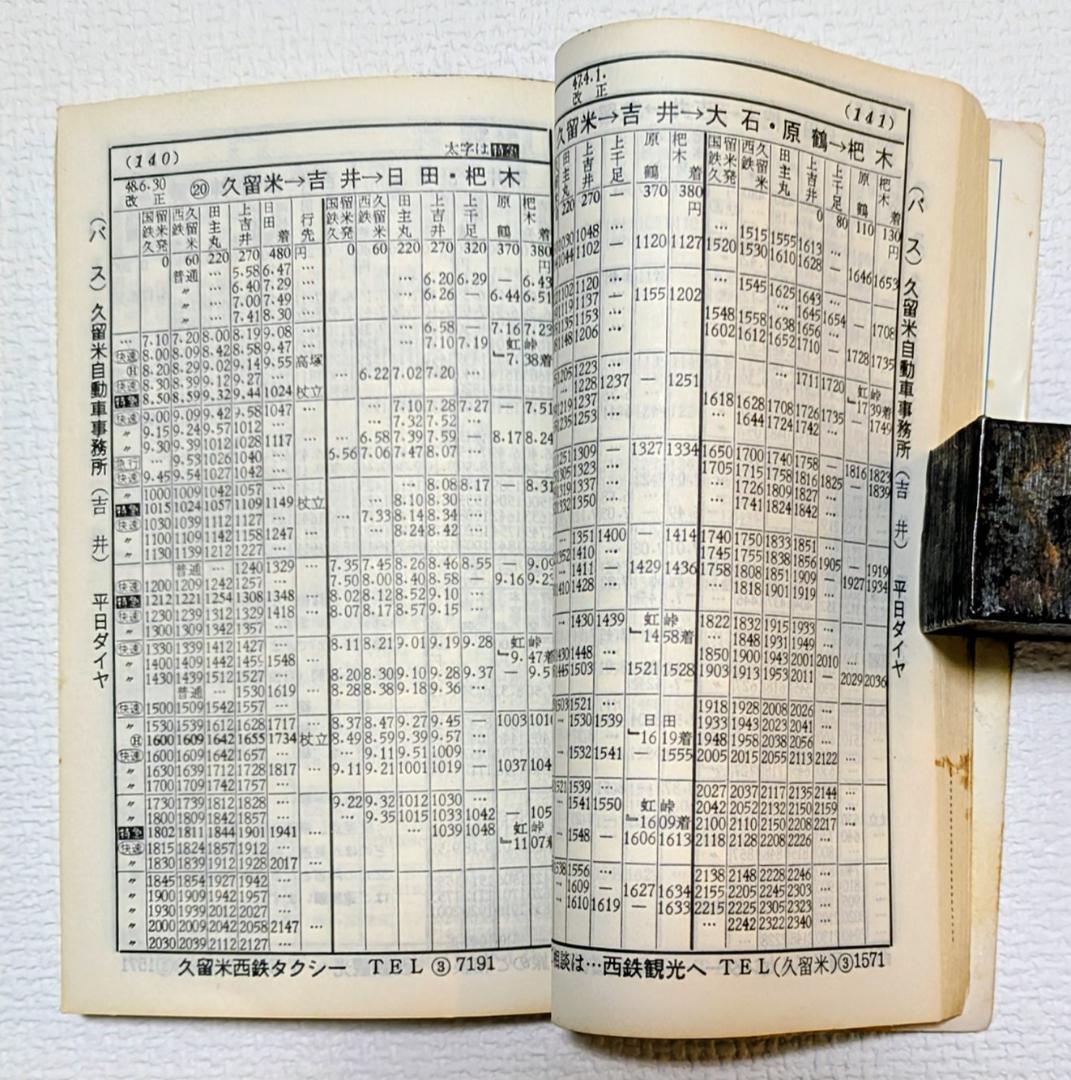 (140)
太字は特急
48.6.30 改正
⑳ 久留米→吉井→日田・杷木
国鉄久留米発 西鉄久留米 田主丸 上吉井 日田着 行先 国鉄久留米発 西鉄久留米 田主丸 上吉井 上千足 原鶴 杷木着
0 60 220 270 480円 0 60 220 270 320 370 380円
普通 … 5.58 6.47 …
〃 … 6.40 7.29 … … 6.20 6.29 — 6.43
〃 … 7.00 7.49 … … 6.26 — 6.44 6.51
〃 … 7.41 8.30 …
… 7.10 7.20 8.00 8.19 9.08 … … 6.58 — 7.16 7.23
快速 8.00 8.09 8.42 8.58 9.47 … … 7.10 7.19 虹峠
Ⓗ 8.20 8.29 9.02 9.14 9.55 高塚 7.38着
快速 8.30 8.39 9.12 9.27 … … 6.22 7.02 7.20 …
特急 8.50 8.59 9.32 9.44 1024 杖立
快速 9.00 9.09 9.42 9.58 1047 … … 7.10 7.28 7.27 — 7.51
〃 9.15 9.24 9.57 1012 … … 7.32 7.52 …
〃 9.30 9.39 1012 1028 1117 … … 6.58 7.39 7.59 — 8.17 8.24
急行 … 9.53 1026 1040 … 6.56 7.06 7.47 8.07 …
快速 9.45 9.54 1027 1042 …
〃 1000 1009 1042 1057 … … 8.08 8.17 — 8.31
特急 1015 1024 1057 1109 1149 杖立 … 8.10 8.30 …
快速 1030 1039 1112 1127 … … 7.33 8.14 8.34 …
〃 1100 1109 1142 1158 1247 … … 8.24 8.42 …
〃 1130 1139 1212 1227 …
普通 … 1240 1329 … 7.35 7.45 8.26 8.46 8.55 — 9.09
快速 1200 1209 1242 1257 … 7.50 8.00 8.40 8.58 — 9.16 9.23
特急 1212 1221 1254 1308 1348 … 8.02 8.12 8.52 9.10 …
快速 1230 1239 1312 1329 1418 … 8.07 8.17 8.57 9.15 …
〃 1300 1309 1342 1357 …
快速 1330 1339 1412 1427 … 8.11 8.21 9.01 9.19 9.28 虹峠
〃 1400 1409 1442 1459 1548 … 9.47着
〃 1430 1439 1512 1527 … 8.20 8.30 9.10 9.28 9.37 —
普通 … 1530 1619 … 8.28 8.38 9.18 9.36 …
快速 1500 1509 1542 1557 …
〃 1530 1539 1612 1628 1717 … 8.37 8.47 9.27 9.45 — 1003
Ⓗ 1600 1609 1642 1655 1734 杖立 8.49 8.59 9.39 9.57 …
快速 1600 1609 1642 1657 … … 9.11 9.51 1009 …
〃 1630 1639 1712 1728 1817 … 9.11 9.21 1001 1019 — 1037
〃 1700 1709 1742 1757 …
〃 1730 1739 1812 1828 … 9.22 9.32 1012 1030 …
〃 1800 1809 1842 1857 … … 9.35 1015 1033 1042 —
特急 1802 1811 1844 1901 1941 … … 1039 1048 虹峠
快速 1815 1824 1857 1912 … 1107着
〃 1830 1839 1912 1928 2017 …
〃 1845 1854 1927 1942 …
〃 1900 1909 1942 1957 …
〃 1930 1939 2012 2027 …
〃 2000 2009 2042 2058 2147 …
〃 2030 2039 2112 2127 …
久留米西鉄タクシー TEL ③ 7191
(バス)久留米自動車事務所(吉井) 平日ダイヤ
47.4.1. 改正
(141)
久留米→吉井→大石・原鶴→杷木
田主丸 上吉井 上千足 原鶴 杷木着 国鉄久留米発 西鉄久留米 田主丸 上吉井 原鶴 杷木着
220 270 — 370 380円 0 80 110 130円
1030 1048 …
1044 1102 — 1120 1127 … 1515 1555 1613 …
1520 1530 1610 1628 — 1646 1653
1102 1120 … … 1545 1625 1643 …
1119 1137 — 1155 1202 … 1645 1654 — 1708
1135 1153 … 1548 1558 1638 1656 …
1148 1206 … 1602 1612 1652 1710 — 1728 1735
1205 1223 … … 1711 1720 虹峠
1228 1237 — 1251 1739着
1219 1237 … 1618 1628 1708 1726 1735 — 1749
1235 1253 … … 1644 1724 1742 …
1251 1309 — 1327 1334 1650 1700 1740 1758 — 1816 1823
1305 1323 … 1705 1715 1758 1816 1825 — 1839
1319 1337 … … 1726 1809 1827 …
1332 1350 … … 1741 1824 1842 …
… 1351 1400 — 1414 1740 1750 1833 1851 …
1352 1410 … 1745 1755 1838 1856 1905 — 1919
… 1411 — 1429 1436 1758 1808 1851 1909 — 1927 1934
1410 1428 … … 1818 1901 1919 …
… 1430 1439 虹峠 1822 1832 1915 1933 …
1458着 … 1848 1931 1949 …
1430 1448 … 1850 1900 1943 2001 2010 …
1445 1503 — 1521 1528 1903 1913 1953 2011 — 2029 2036
1503 1521 … 1918 1928 2008 2026 …
… 1530 1539 日田 1933 1943 2023 2041 …
1619着 1948 1958 2038 2056 …
… 1532 1541 — 1555 2005 2015 2055 2113 2122 …
1521 1539 … 2027 2037 2117 2135 2144 …
… 1541 1550 虹峠 2042 2052 2132 2150 2159 …
1609着 2100 2110 2150 2208 2217 …
… 1548 — 1606 1613 2118 2128 2208 2226 …
1538 1556 … 2138 2148 2228 2246 …
… 1609 — 1627 1634 2155 2205 2245 2303 …
… 1610 1619 — 1633 2215 2225 2305 2323 …
… 2242 2322 2340 …
相談は…西鉄観光へ TEL(久留米)③1571
(バス)久留米自動車事務所(吉井) 平日ダイヤ